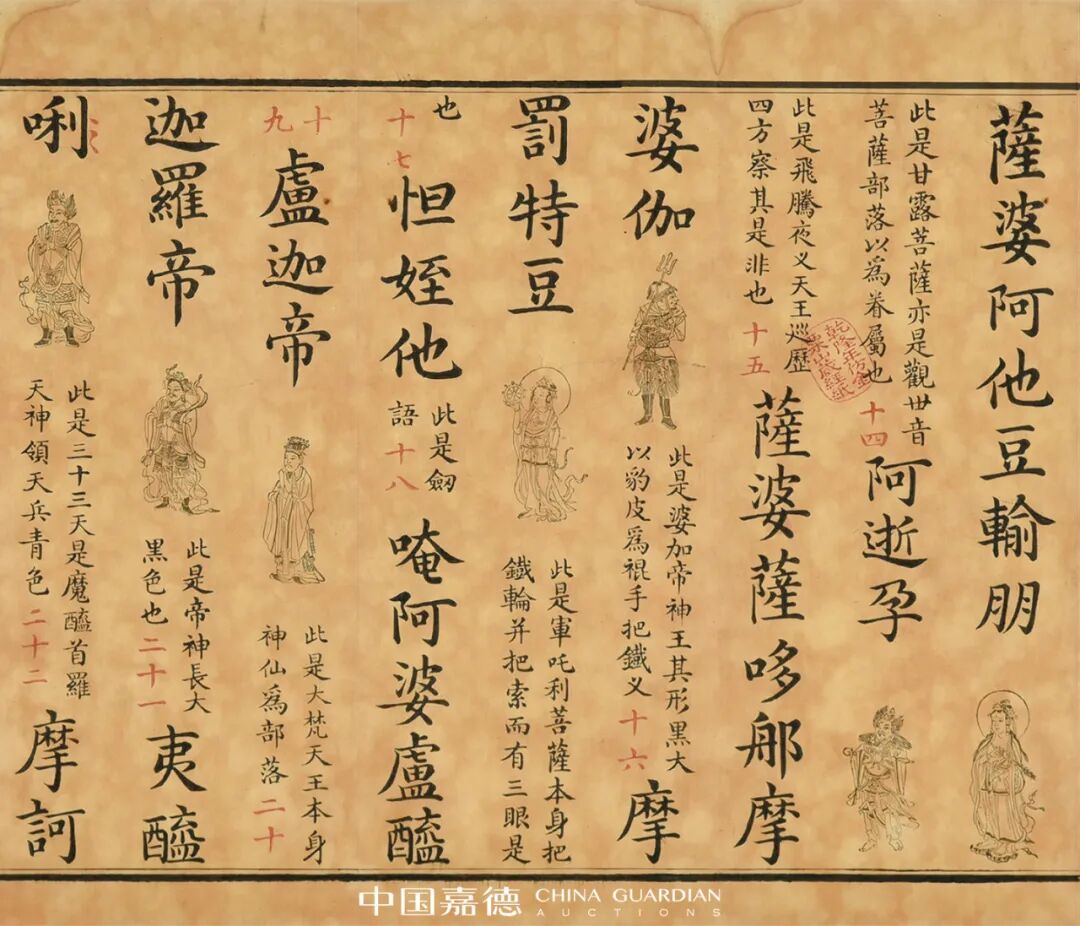 薩婆阿他豆輸朋
此是甘露菩薩亦是觀世音
菩薩部落以爲眷屬也 十四
阿逝孕
此是飛騰夜义天王巡歷
四方察其是非也 十五
薩婆薩哆那摩
婆伽
此是婆加帝神王其形黑大
以豹皮爲裩手把鐵义 十六
摩
罰特豆
此是軍吒利菩薩本身把
鐵輪并把索而有三眼是
也
十七
怛姪他
此是劒
語 十八
唵阿婆盧醯
十九
盧迦帝
此是大梵天王本身
神仙爲部落 二十
迦羅帝
此是帝神長大
黑色也 二十一
夷醯
唎
此是三十三天是魔醯首羅
天神領天兵青色 二十二
摩訶
乾隆年仿金
粟山藏經紙
中国嘉德 CHINA GUARDIAN
AUCTIONS